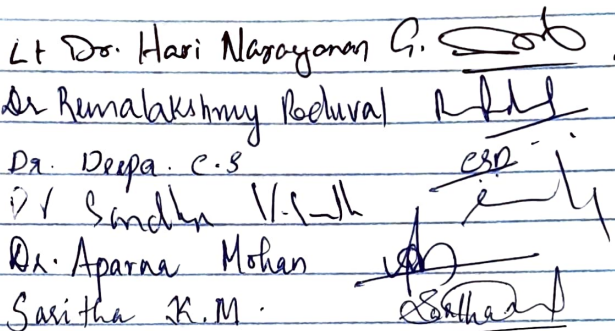 Lt Dr. Hari Narayanan G.
Dr Remalakshmy Poduval
Dr. Deepa. C.S CSD
Dr Sandhya
Dr. Aparna Mohan
Saritha K.M. Saritha